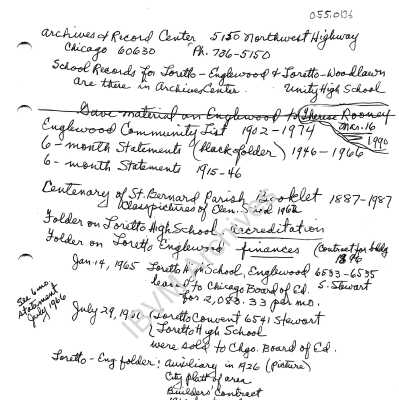 055.006
Archives & Record Center 5150 Northwest Highway
Chicago 60630 Ph. 736-5150
School Records for Loretto-Englewood & Loretto-Woodlawn
are there in Archives Center. Unity High School
Gave material on Englewood to Therese Rooney
Mar. 16
1990
Englewood Community List 1902-1974
6-month Statements (black folder) 1946-1966
6-month Statements 1915-46
Centenary of St. Bernard Parish Booklet 1887-1987
Class pictures of Elem. 1962
Folder on Loretto High School accreditation
Folder on Loretto Englewood finances (Contract for bldg
1896
Jan 14, 1965 Loretto High School, Englewood 6533-6535
S. Stewart
leased to Chicago Board of Ed.
for 2,083.33 per mo.
See 6 mo.
statement
July 1966
July 29, (Loretto Convent 6541 Stewart
(Loretto High School
were sold to Chgo. Board of Ed.
Loretto-Eng folder: auxiliary in 1926 (picture)
City platt of area
Builders' Contract
IBVM Archives